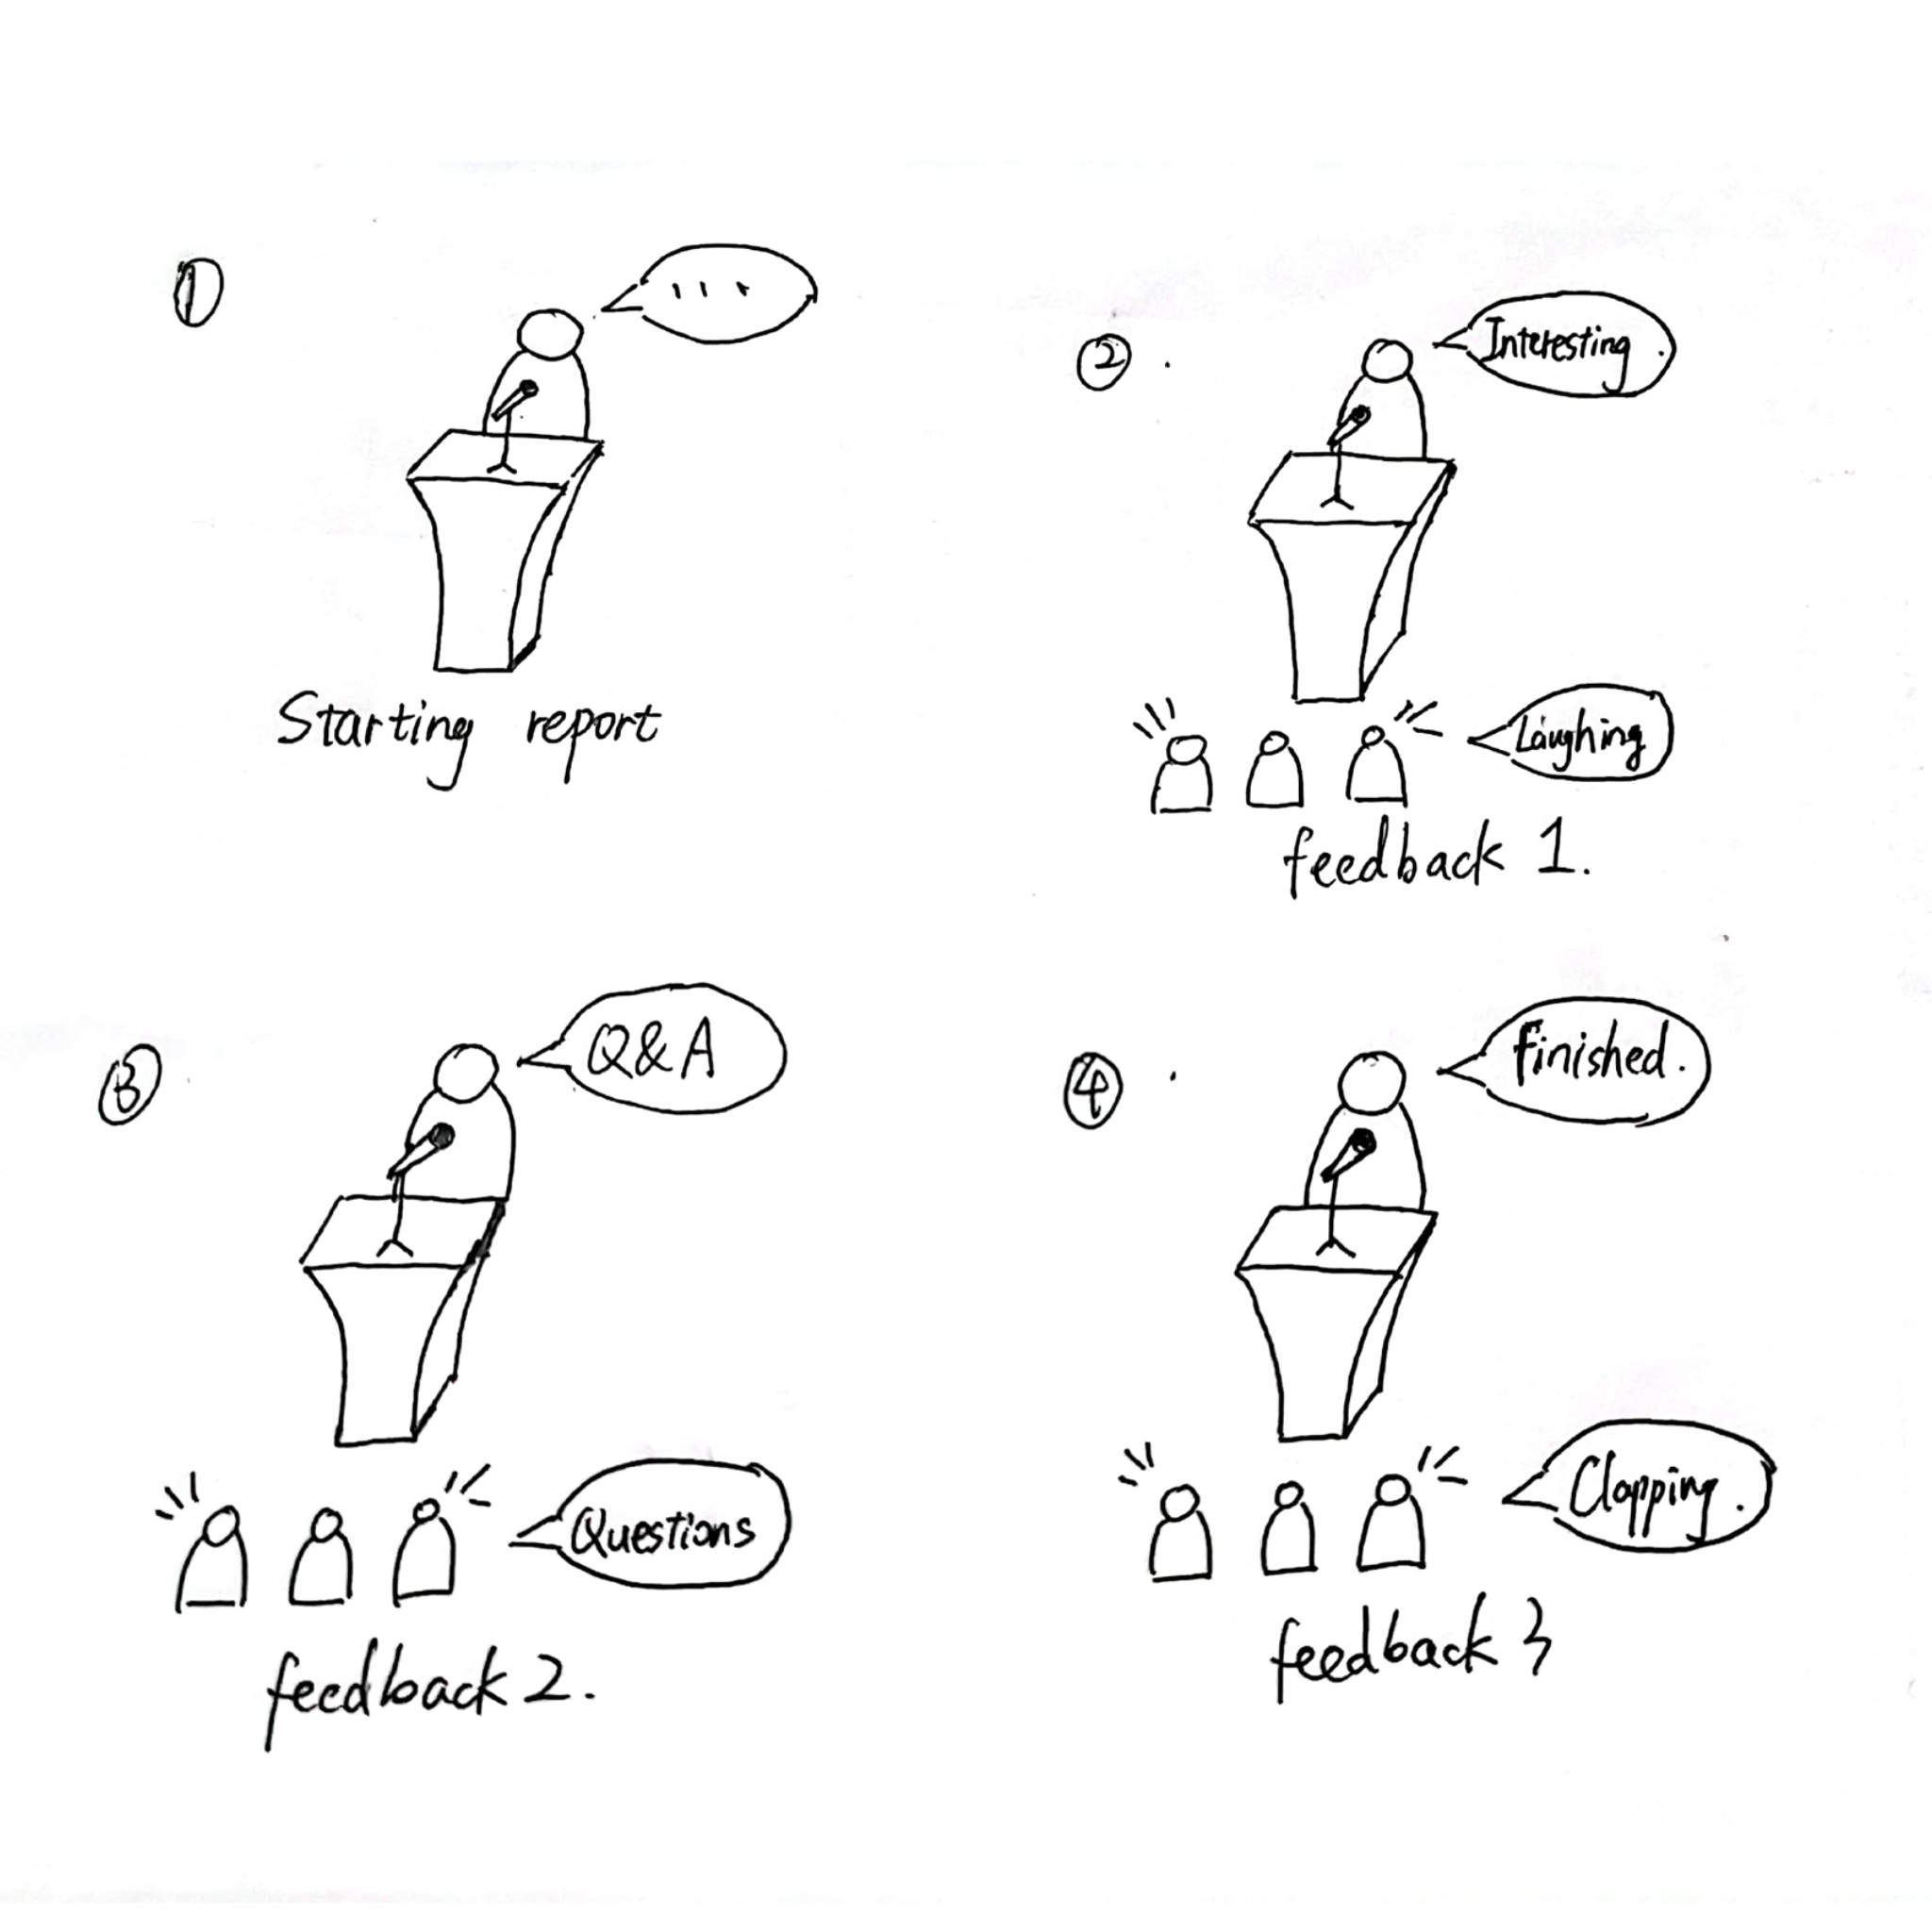 ①
...
Starting report
②.
Interesting.
Laughing
feedback 1.
③
Q&A
Questions
feedback 2.
④.
finished.
Clapping.
feedback 3